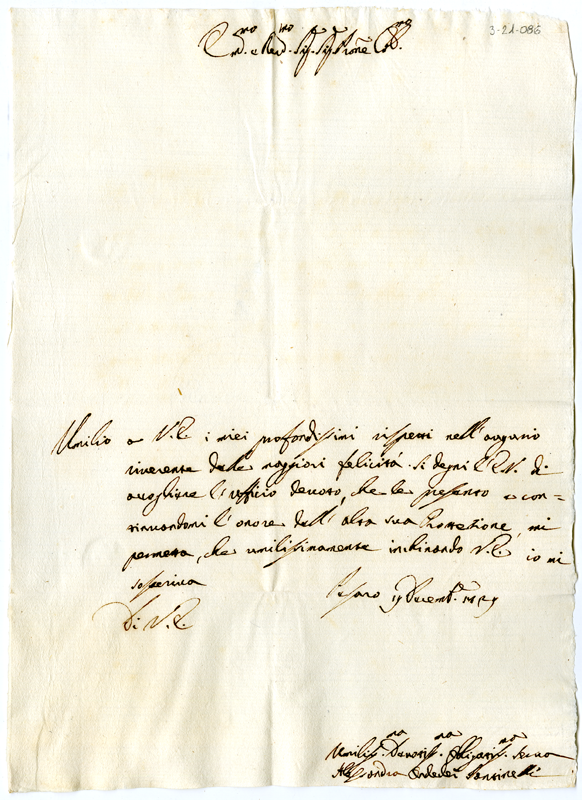 3-21-086
Em.mo e Rev.mo Sig. Sig. Prone Col.mo
Umilio a V.E. i miei profondissimi rispetti nell'augurio
riverente delle maggiori felicità. Si degni l'E.V. di
accogliere l'ufficio devoto, che le presento e con=
tinuandomi l'onore dell'alta sua Protezione, mi
permetta, che umilissimamente inchinando V.E. io mi
soscriva
Di V.E.
Pesaro 19 Decemb.e
Umiliss.ma Devotiss.ma Obligatiss.ma Serva
Alessandra Santinelli